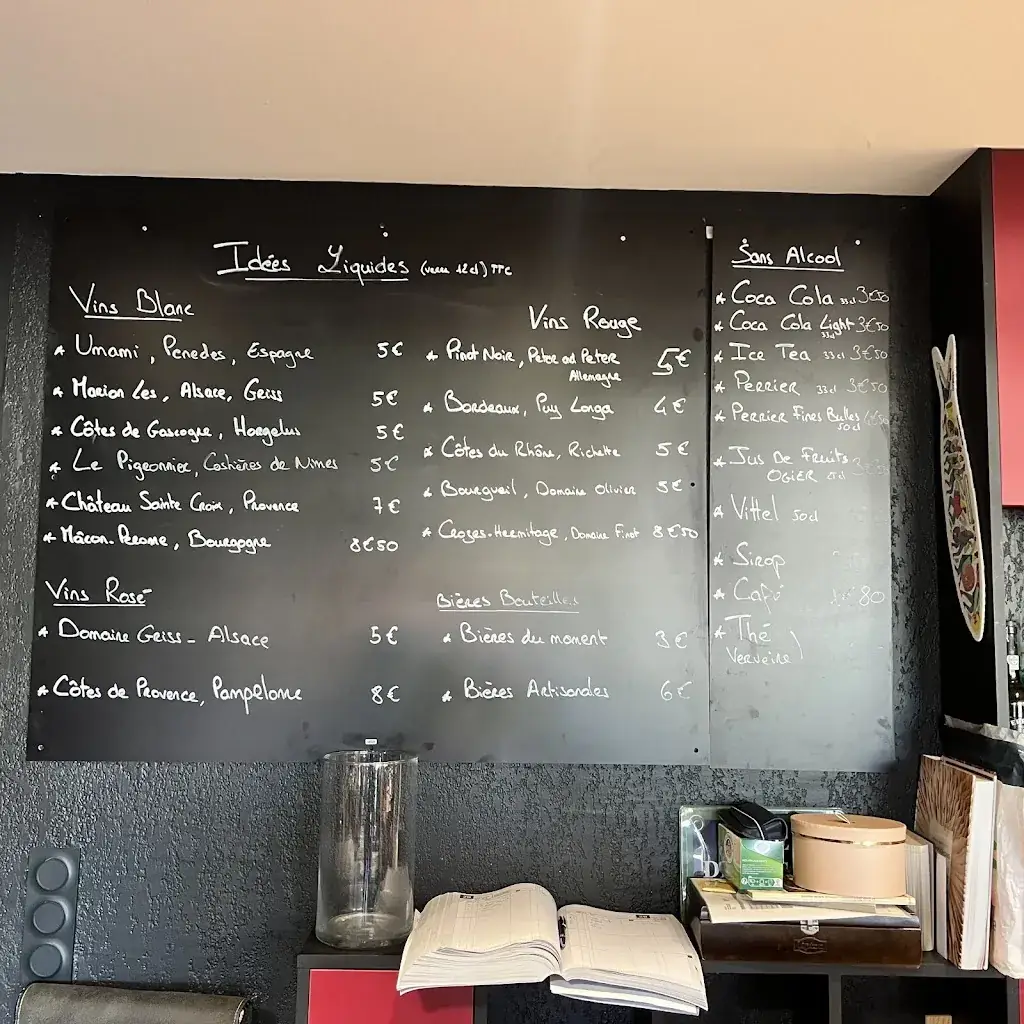 Idées Liquides (verre 12cl) TTC
Vins Blanc
* Umami, Penedes, Espagne 5€
* Marion Les, Alsace, Geiss 5€
* Côtes de Gascogne, Horgelus 5€
* Le Pigeonnier, Costières de Nimes 5€
* Château Sainte Croix, Provence 7€
* Mâcon-Peronne, Bourgogne 8€50
Vins Rosé
* Domaine Geiss - Alsace 5€
* Côtes de Provence, Pampelonne 8€
Vins Rouge
* Pinot Noir, Peter and Peter 5€
Allemagne
* Bordeaux, Puy Longa 4€
* Côtes du Rhône, Richette 5€
* Bourgueil, Domaine Olivier 5€
* Crozes-Hermitage, Domaine Finot 8€50
Bières Bouteilles
* Bières du moment 3€
* Bières Artisanales 6€
Sans Alcool
* Coca Cola 33cl 3€50
* Coca Cola Light 3€50
33cl
* Ice Tea 33cl 3€50
* Perrier 33cl 3€50
* Perrier Fines Bulles
50cl
* Jus De Fruits
OGIER
* Vittel 50cl
* Sirop
* Café 80
* Thé
Verveine)